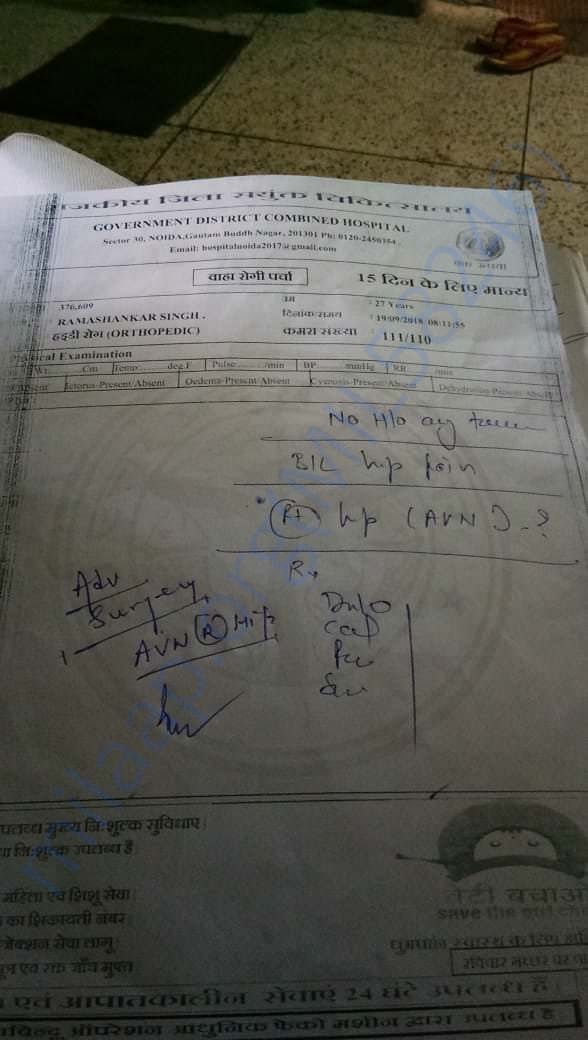 राजकीय जिला संयुक्त चिकित्सालय
GOVERNMENT DISTRICT COMBINED HOSPITAL
Sector 30, NOIDA,Gautam Buddh Nagar, 201301 Ph: 0120-2450354 .
Email: hospitalnoida2017@gmail.com
वाहा रोगी पर्चा
15 दिन के लिए मान्य
376,609
उम्र : 27 Years
RAMASHANKAR SINGH .
दिनांक/समय : 19/09/2018 08:11:55
हड्डी रोग (ORTHOPEDIC)
कमरा संख्या : 111/110
Physical Examination
Cm Temp deg F Pulse /min BP mmHg RR /min
Absent Icterus-Present/Absent Oedema-Present/Absent Cynosis-Present/Absent Dehydration-Present/Absent
No H/o any
B/L hip pain
Rt hip (AVN) - ?
Rx
Adv
Surgery
AVN R Hip
cap
मुख्य निःशुल्क सुविधाएं
निःशुल्क उपलब्ध हैं
महिला एवं शिशु सेवा
का शिकायती नंबर
सेवा लागू
एवं रक्त जाँच मुफ्त
बेटी बचाओ
save the girl child
धुम्रपान स्वास्थ के लिए
रविवार
एवं आपातकालीन सेवाएं 24 घंटे उपलब्ध हैं
ऑपरेशन आधुनिक फेको मशीन द्वारा उपलब्ध है